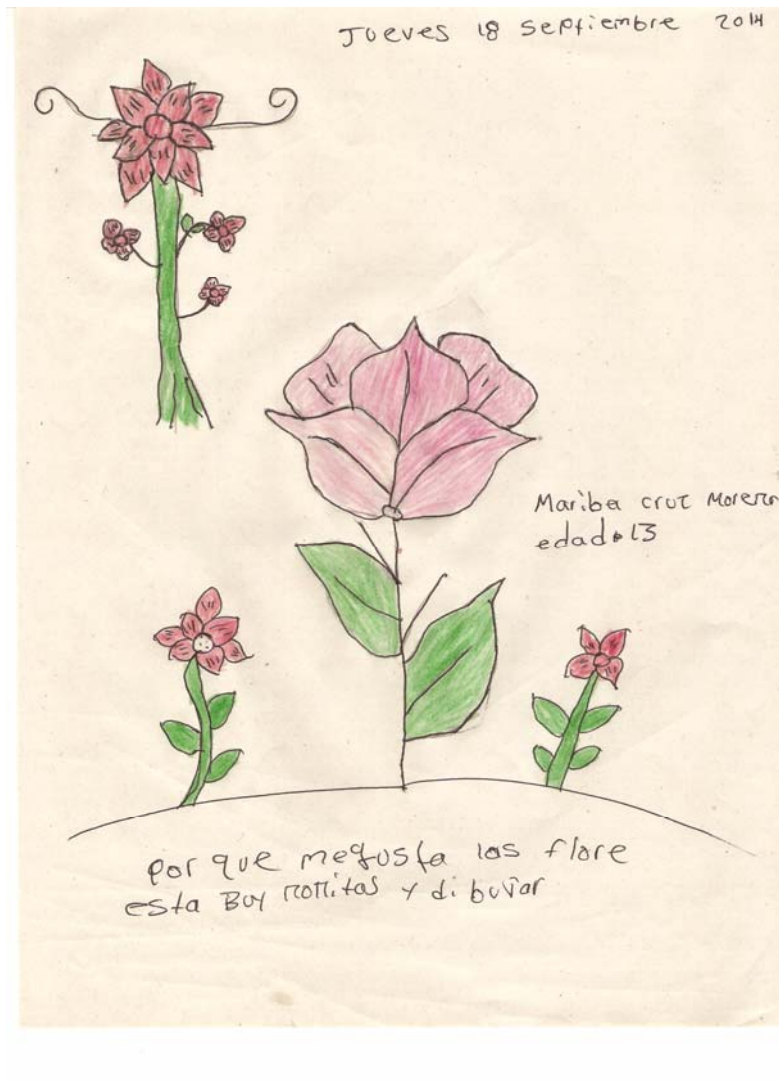 Jueves 18 septiembre 2014
Mariba cruz
edad 13
por que megusta las flore
esta Buy y dibuñar